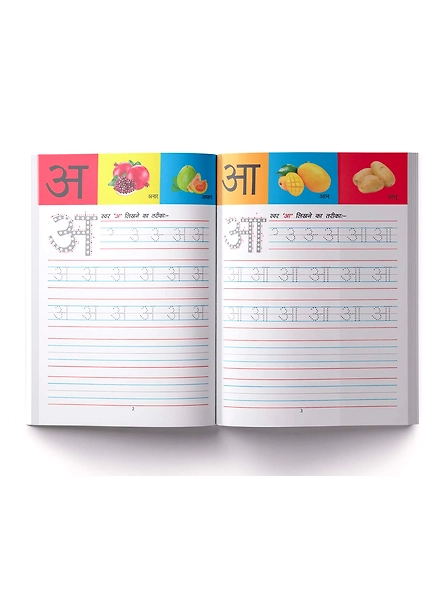 अ
अनार
स्वर "अ" लिखने का तरीका:-
अ
अ अ अ अ अ अ
अ अ अ अ अ अ
2
आ
आम आलू
स्वर "आ" लिखने का तरीका:-
आ
आ आ आ आ आ आ
आ आ आ आ आ आ
3